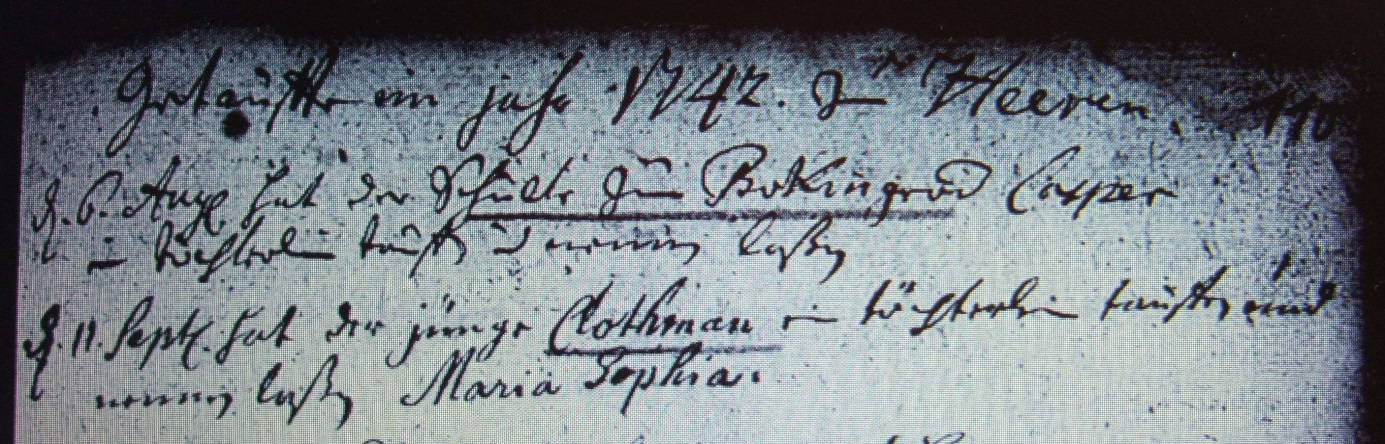 Getauffte im jahr 1742. Zu Heeren. 110
d. 6. Aug. hat der Schulte zum Bokingrod Casper
ein töchterlein tauffen u nennen laßen
d. 11. Sept. hat der junge Clothman ein töchterlein tauffen und
nennen laßen Maria Sophia.